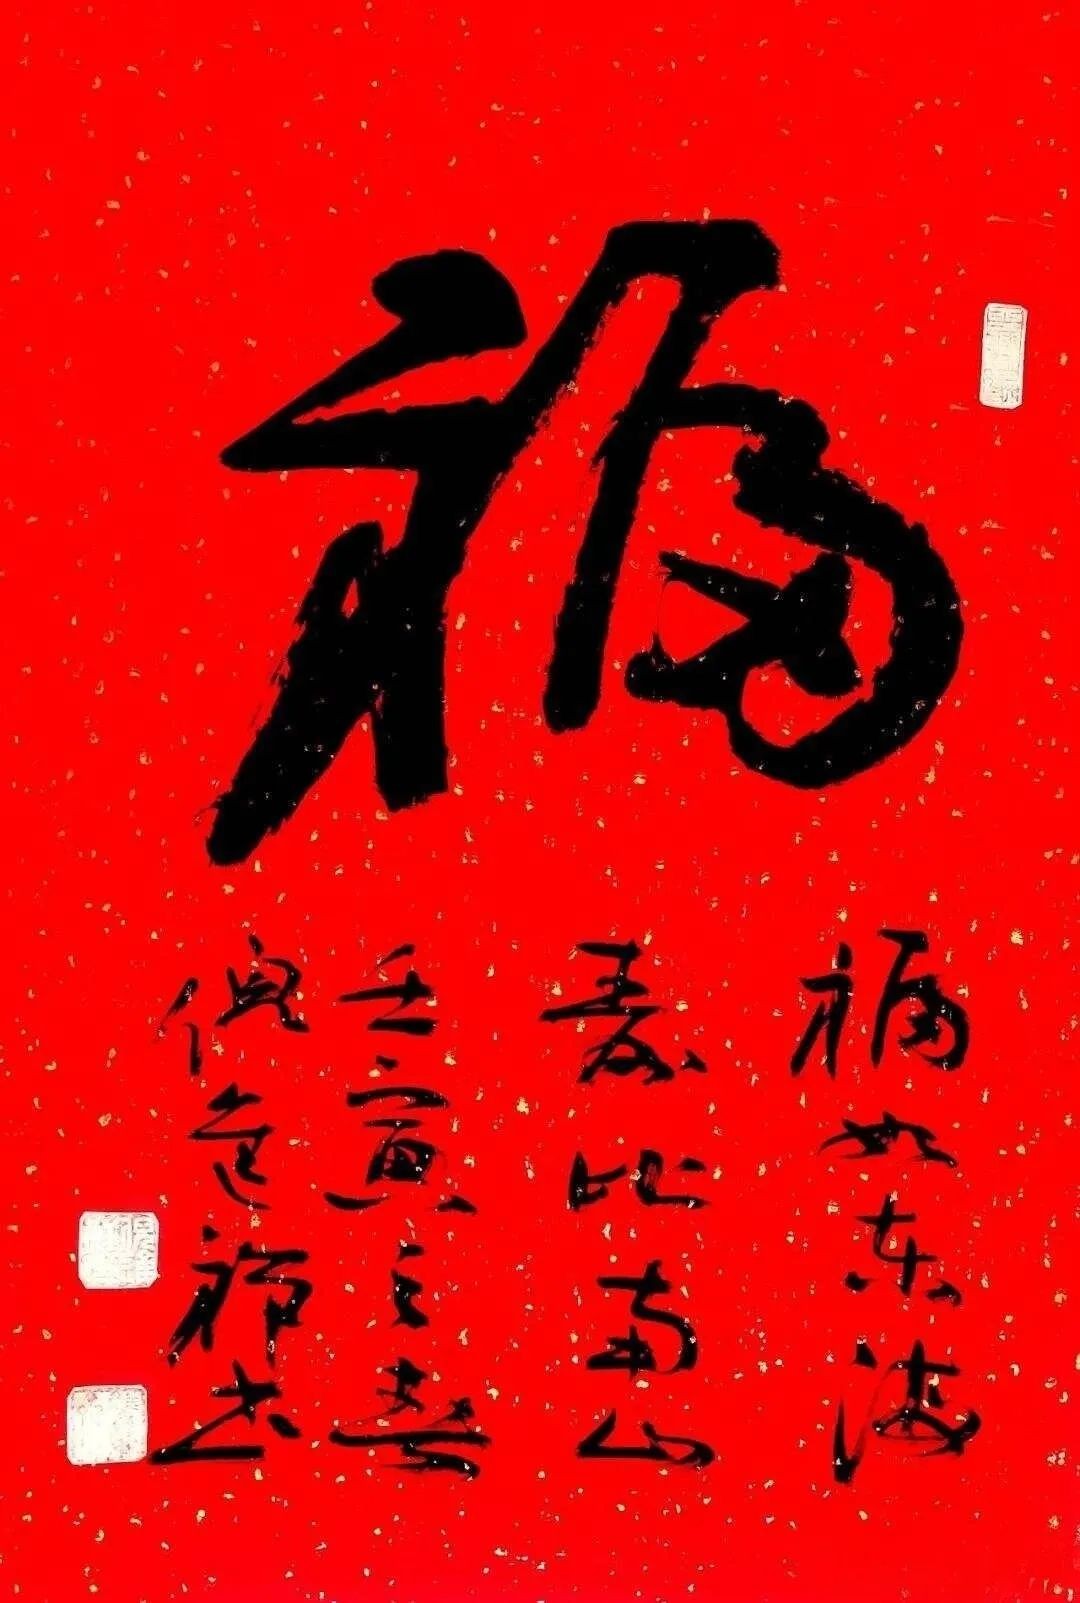 福
福如东海
寿比南山
壬寅之春
书